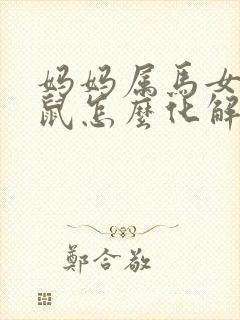 妈妈属馬女
鼠怎麽化解
鄭合敬